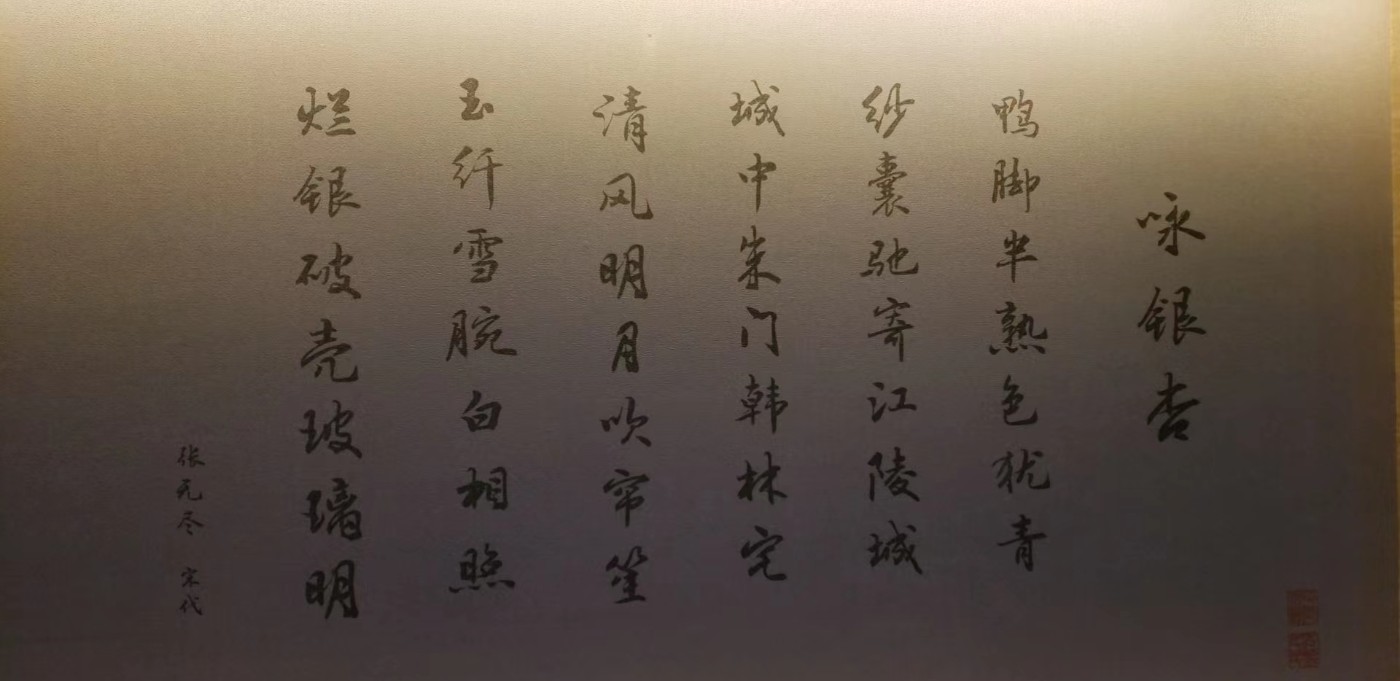 咏银杏
鸭脚半熟色犹青
纱囊驰寄江陵城
城中朱门韩林宅
清风明月吹帘笙
玉纤雪腕白相照
烂银破壳玻璃明
张无尽 宋代